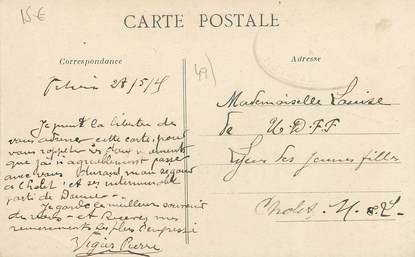 15.€
CARTE POSTALE
Correspondance
Adresse
27/5/
49)
Je prend la liberté de
vous adresser cette carte, pour
vous rappeler les
que j'ai agréablement passé
avec vous durant mon séjour
à Cholet, et ses interminable
parti de Dames
Je garde le meilleur souvenir
et Recevez mes
remerciements les plus empressé
Vigier Pierre
Mademoiselle Louise
de U.D.F.F
Lycée des jeunes filles
Cholet. M. & L.